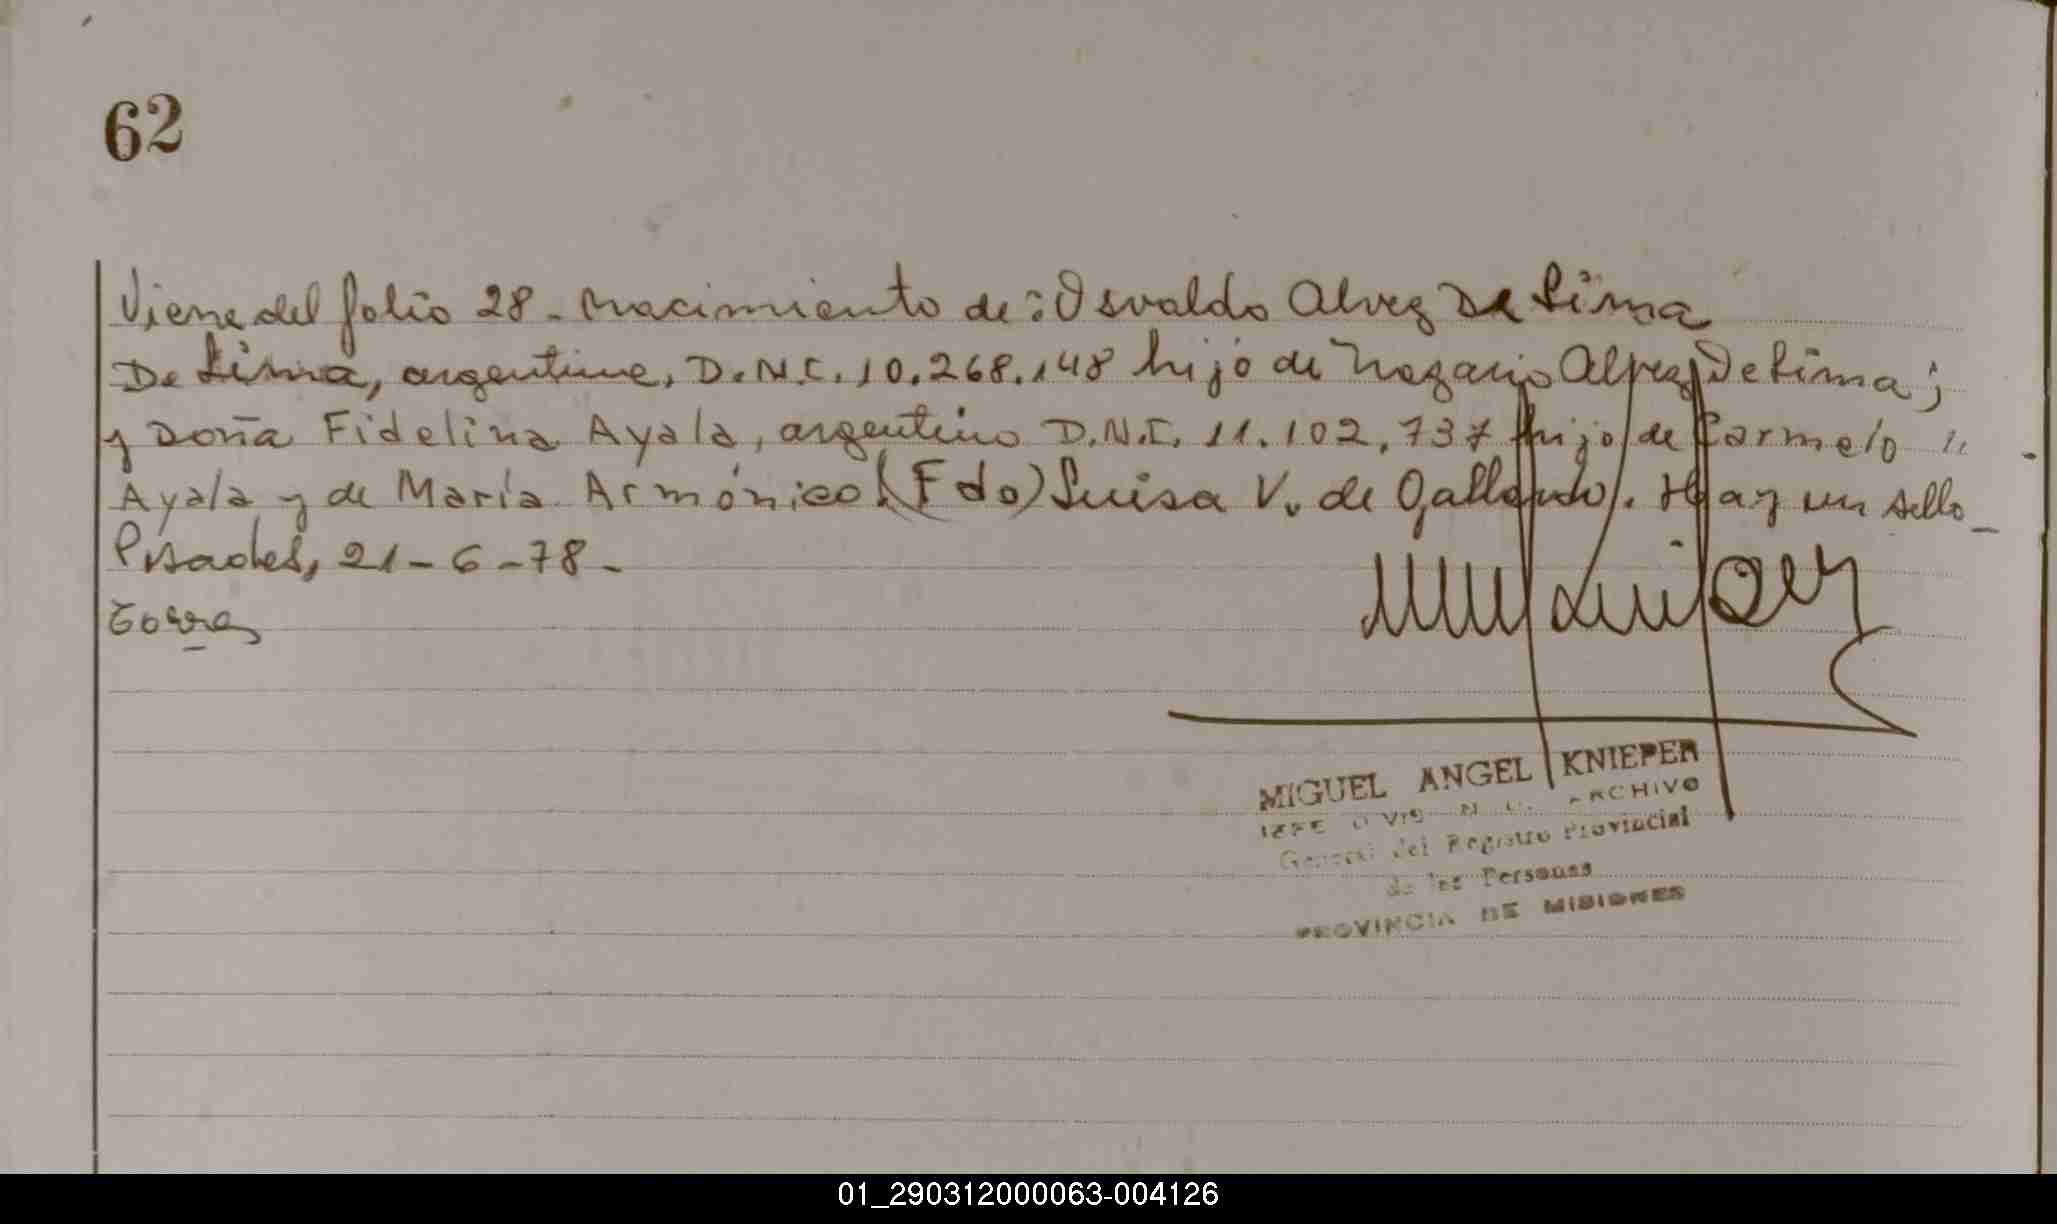 62
Viene del folio 28 - nacimiento de: Osvaldo Alvez De Lima
De Lima, argentino, D.N.I. 10.268.148 hijo de Nazario Alvez De Lima;
y Doña Fidelina Ayala, argentino D.N.I. 11.102.737 hijo de Carmelo "
Ayala y de María Armónico. (Fdo) Luisa V. de Gallardo. Hay un sello_
Posadas, 21-6-78-
Torres
MIGUEL ANGEL KNIEPER
JEFE ARCHIVO
General del Registro Provincial
de las Personas
PROVINCIA DE MISIONES
01_290312000063-004126